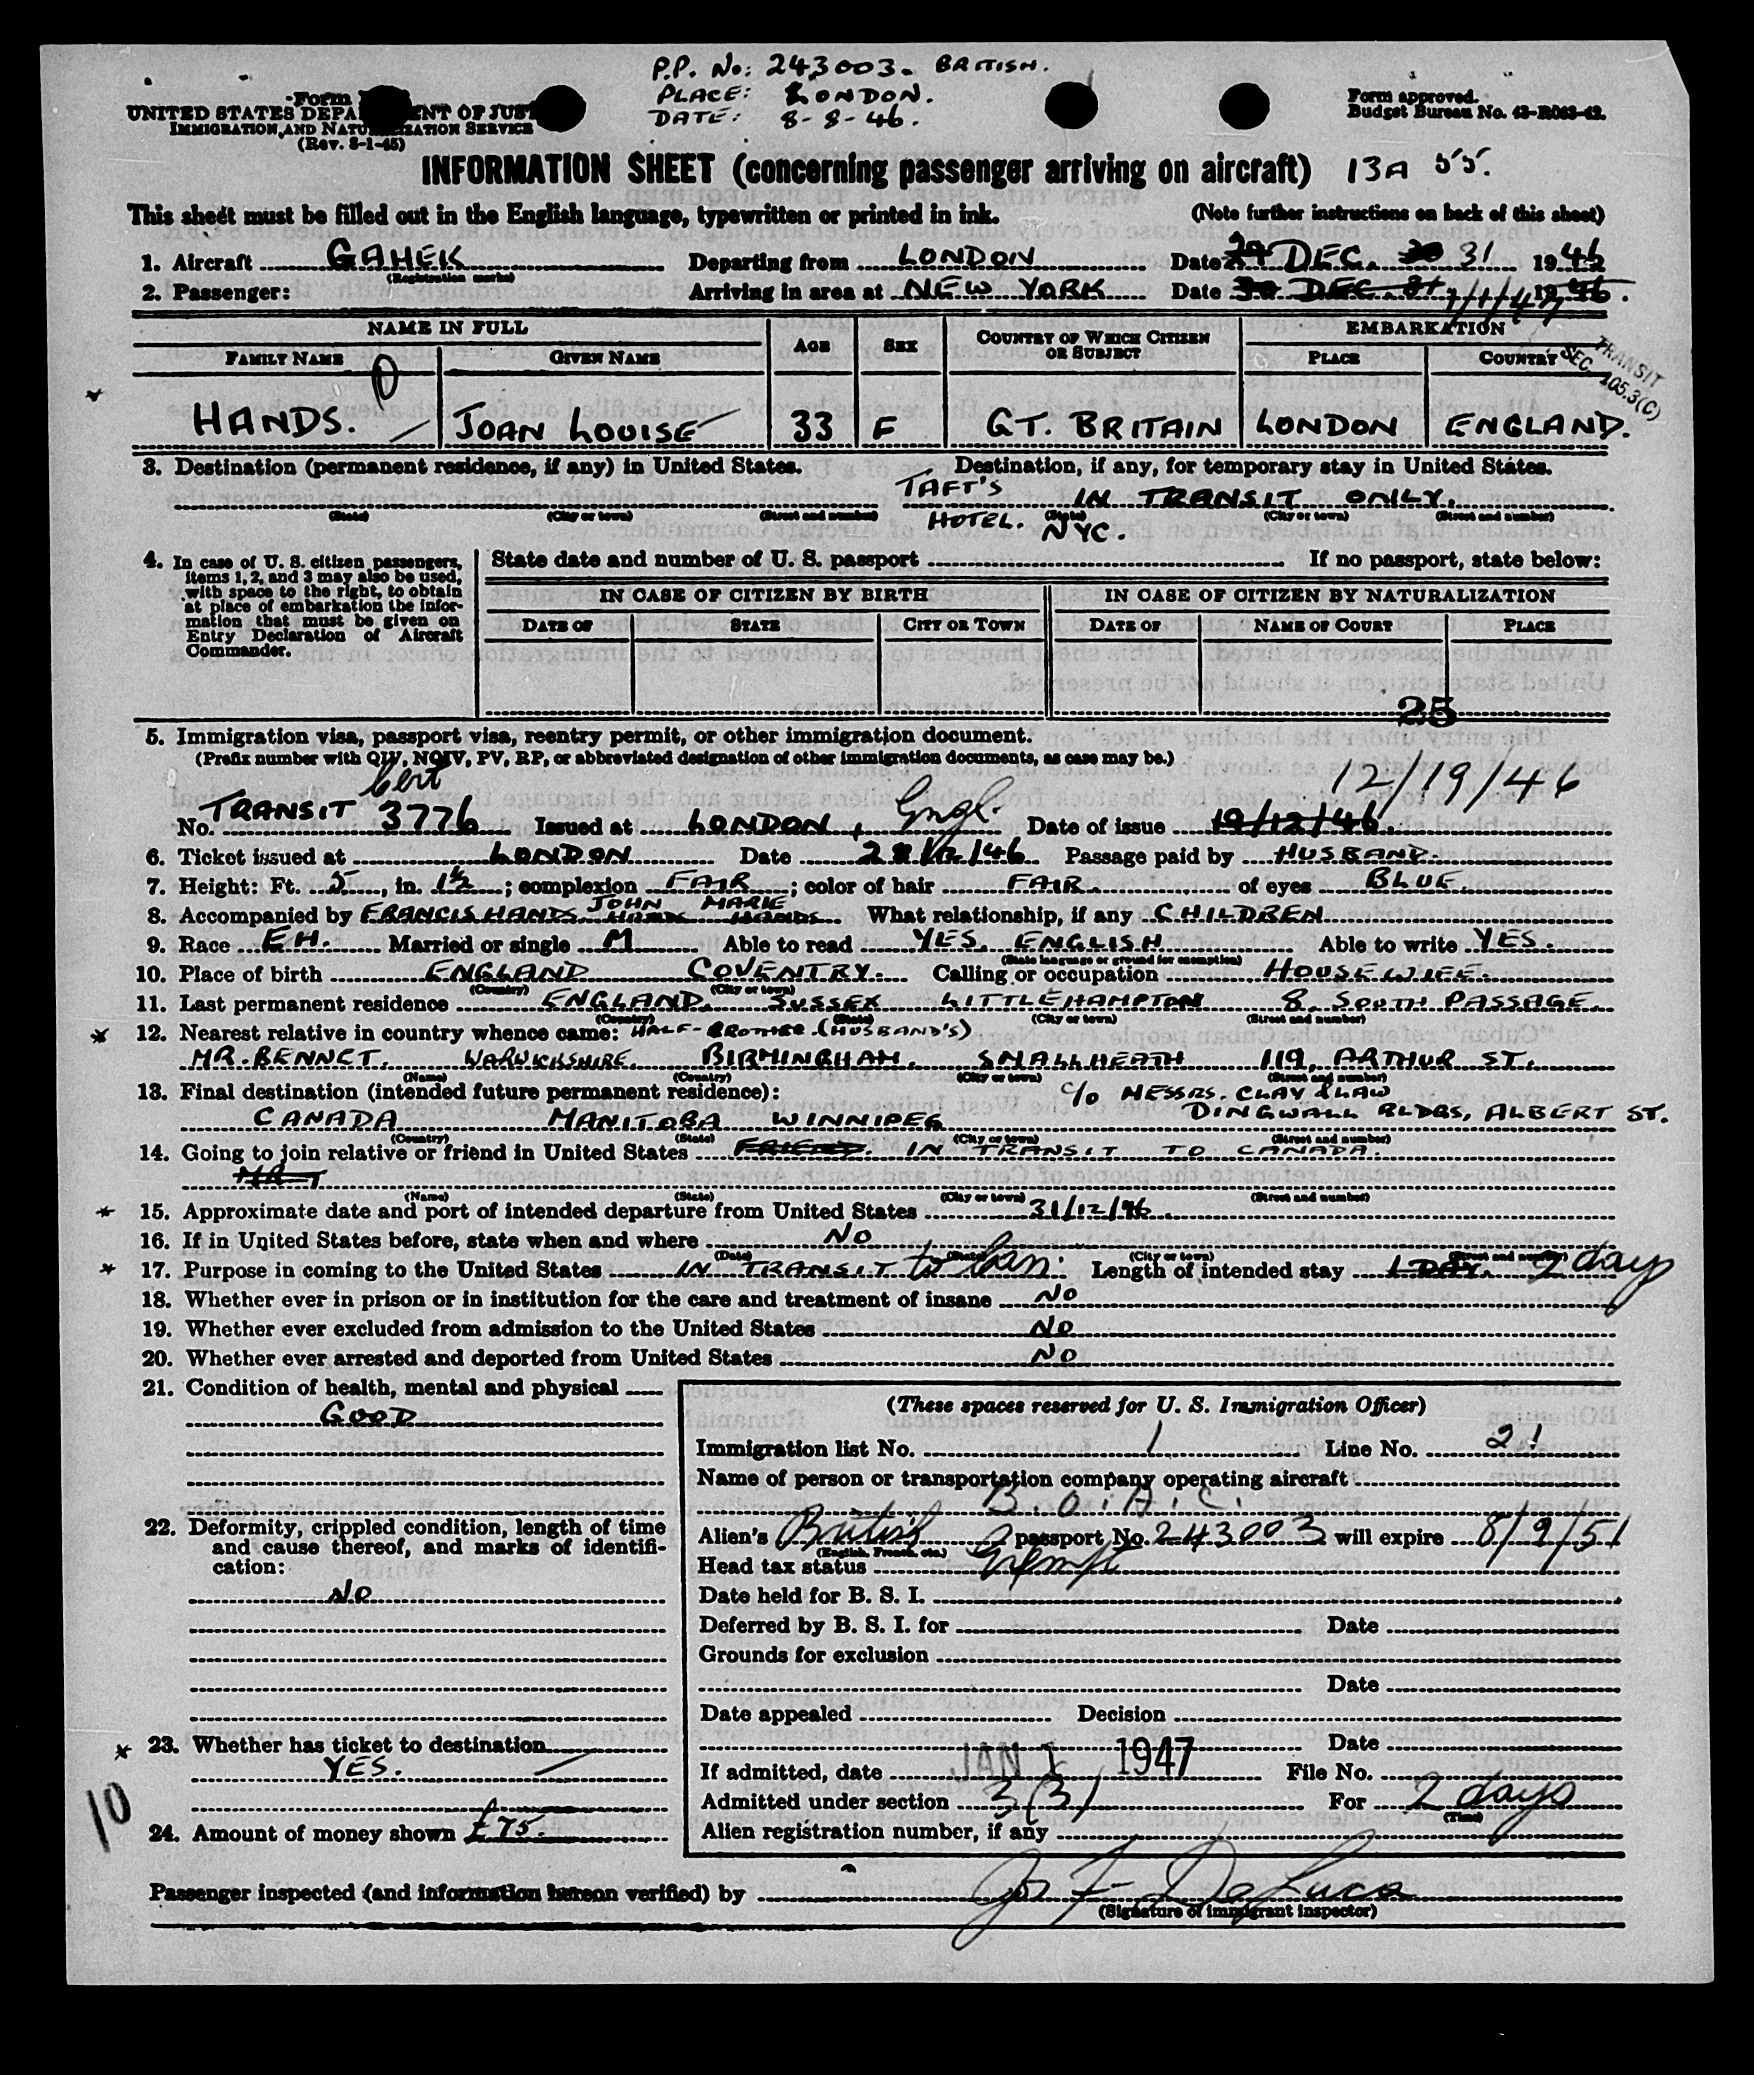 P.P. No: 243003. BRITISH.
PLACE: LONDON.
DATE: 8-8-46.
Form
UNITED STATES DEPA ENT OF JUST
IMMIGRATION AND NATURALIZATION SERVICE
(Rev. 8-1-45)
Form approved.
Budget Bureau No. 43-R063-42.
INFORMATION SHEET (concerning passenger arriving on aircraft) 13A 55.
This sheet must be filled out in the English language, typewritten or printed in ink. (Note further instructions on back of this sheet)
1. Aircraft GAHEK Departing from LONDON Date 29 DEC. 30 31 1946
(Registration marks)
2. Passenger: Arriving in area at NEW YORK Date 30 DEC. 31 1/1/47 1946.
NAME IN FULL AGE SEX COUNTRY OF WHICH CITIZEN OR SUBJECT EMBARKATION
FAMILY NAME GIVEN NAME PLACE COUNTRY
TRANSIT
SEC. 105.3(C)
HANDS. JOAN LOUISE 33 F GT. BRITAIN LONDON ENGLAND.
3. Destination (permanent residence, if any) in United States. Destination, if any, for temporary stay in United States.
TAFT'S IN TRANSIT ONLY.
(State) (City or town) (Street and number) (State) (City or town) (Street and number)
HOTEL. NYC.
4. In case of U. S. citizen passengers, items 1, 2, and 3 may also be used, with space to the right, to obtain at place of embarkation the information that must be given on Entry Declaration of Aircraft Commander.
State date and number of U. S. passport If no passport, state below:
IN CASE OF CITIZEN BY BIRTH IN CASE OF CITIZEN BY NATURALIZATION
DATE OF STATE CITY OR TOWN DATE OF NAME OF COURT PLACE
25
5. Immigration visa, passport visa, reentry permit, or other immigration document.
(Prefix number with QIV, NQIV, PV, RP, or abbreviated designation of other immigration documents, as case may be.)
cert 12/19/46
No. TRANSIT 3776 Issued at LONDON, Engl. Date of issue 19/12/46.
6. Ticket issued at LONDON Date 28/12/46 Passage paid by HUSBAND.
7. Height: Ft. 5, in. 1½; complexion FAIR; color of hair FAIR. of eyes BLUE.
JOHN MARIE
8. Accompanied by FRANCIS HANDS. HANDS HANDS What relationship, if any CHILDREN
9. Race EH. Married or single M Able to read YES. ENGLISH Able to write YES.
(State language or ground for exemption)
10. Place of birth ENGLAND COVENTRY. Calling or occupation HOUSEWIFE.
(Country) (City or town)
11. Last permanent residence ENGLAND. SUSSEX LITTLEHAMPTON 8. SOUTH PASSAGE.
(Country) (State) (City or town) (Street and number)
12. Nearest relative in country whence came: HALF-BROTHER (HUSBAND'S)
MR. BENNCT. WARWICKSHIRE. BIRMINGHAM. SMALLHEATH 119, ARTHUR ST.
(Name) (Country) (City or town) (Street and number)
13. Final destination (intended future permanent residence): C/O MESSRS. CLAY & LAW
CANADA MANITOBA WINNIPEG DINGWALL BLDGS, ALBERT ST.
(Country) (State) (City or town) (Street and number)
14. Going to join relative or friend in United States FRIEND. IN TRANSIT TO CANADA.
MR
(Name) (State) (City or town) (Street and number)
15. Approximate date and port of intended departure from United States 31/12/46.
16. If in United States before, state when and where NO
(Date) (State) (City or town) (Street and number)
17. Purpose in coming to the United States IN TRANSIT to Can. Length of intended stay 1 DAY. 2 days
18. Whether ever in prison or in institution for the care and treatment of insane NO
19. Whether ever excluded from admission to the United States NO
20. Whether ever arrested and deported from United States NO
21. Condition of health, mental and physical
GOOD
22. Deformity, crippled condition, length of time and cause thereof, and marks of identification:
NO
23. Whether has ticket to destination
YES.
10
24. Amount of money shown £75.
(These spaces reserved for U. S. Immigration Officer)
Immigration list No. 1 Line No. 21
Name of person or transportation company operating aircraft
B.O.A.C.
Alien's British passport No. 243003 will expire 8/9/51
(English, French, etc.)
Head tax status Exempt
Date held for B. S. I.
Deferred by B. S. I. for Date
Grounds for exclusion
Date
Date appealed Decision
Date
If admitted, date JAN 1 1947 File No.
Admitted under section 3(3) For 2 days
(Time)
Alien registration number, if any
Passenger inspected (and information hereon verified) by Jos F DeLuca
(Signature of immigrant inspector)